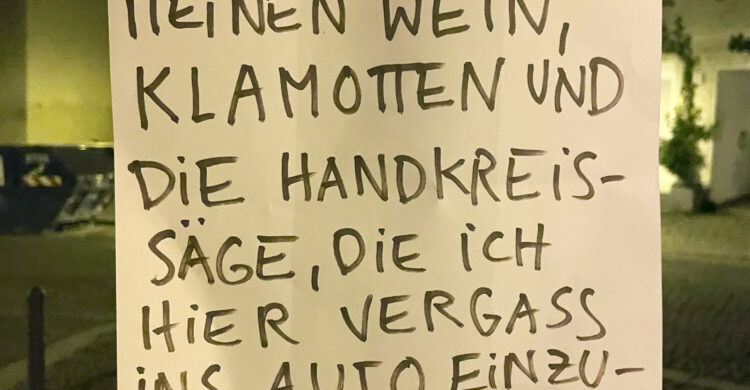 MEINEN WEIN,
KLAMOTTEN UND
DiE HANDKREiS-
SÄGE, DiE iCH
HiER VERGASS
iNS AUTO EiNZU-